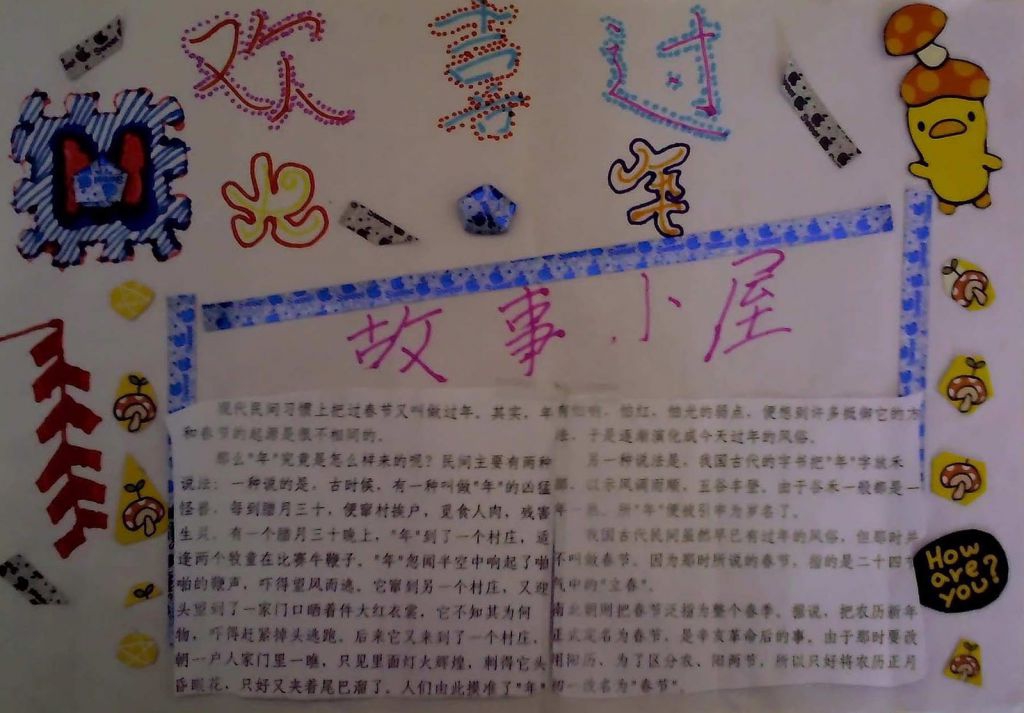 欢喜过
北
年
故事小屋
现代民间习惯上把过春节又叫做过年。其实，年
和春节的起源是很不相同的。
那么"年"究竟是怎么样来的呢？民间主要有两种
说法：一种说的是，古时候，有一种叫做"年"的凶猛
怪兽，每到腊月三十，便窜村挨户，觅食人肉，残害
生灵。有一个腊月三十晚上，"年"到了一个村庄，适
逢两个牧童在比赛牛鞭子。"年"忽闻半空中响起了啪
啪的鞭声，吓得望风而逃。它窜到另一个村庄，又迎
头望到了一家门口晒着件大红衣裳，它不知其为何
物，吓得赶紧掉头逃跑。后来它又来到了一个村庄，
朝一户人家门里一瞧，只见里面灯火辉煌，刺得它头
昏眼花，只好又夹着尾巴溜了。人们由此摸准了"年"
有怕响，怕红，怕光的弱点，便想到许多抵御它的方
法，于是逐渐演化成今天过年的风俗。
另一种说法是，我国古代的字书把"年"字放禾
部，以示风调雨顺，五谷丰登。由于谷禾一般都是一
年一熟。所"年"便被引申为岁名了。
我国古代民间虽然早已有过年的风俗，但那时并
不叫做春节。因为那时所说的春节，指的是二十四节
气中的"立春"。
南北朝则把春节泛指为整个春季。据说，把农历新年
正式定名为春节，是辛亥革命后的事。由于那时要改
用阳历，为了区分农、阳两节，所以只好将农历正月
初一改名为"春节"。
How
are
you?